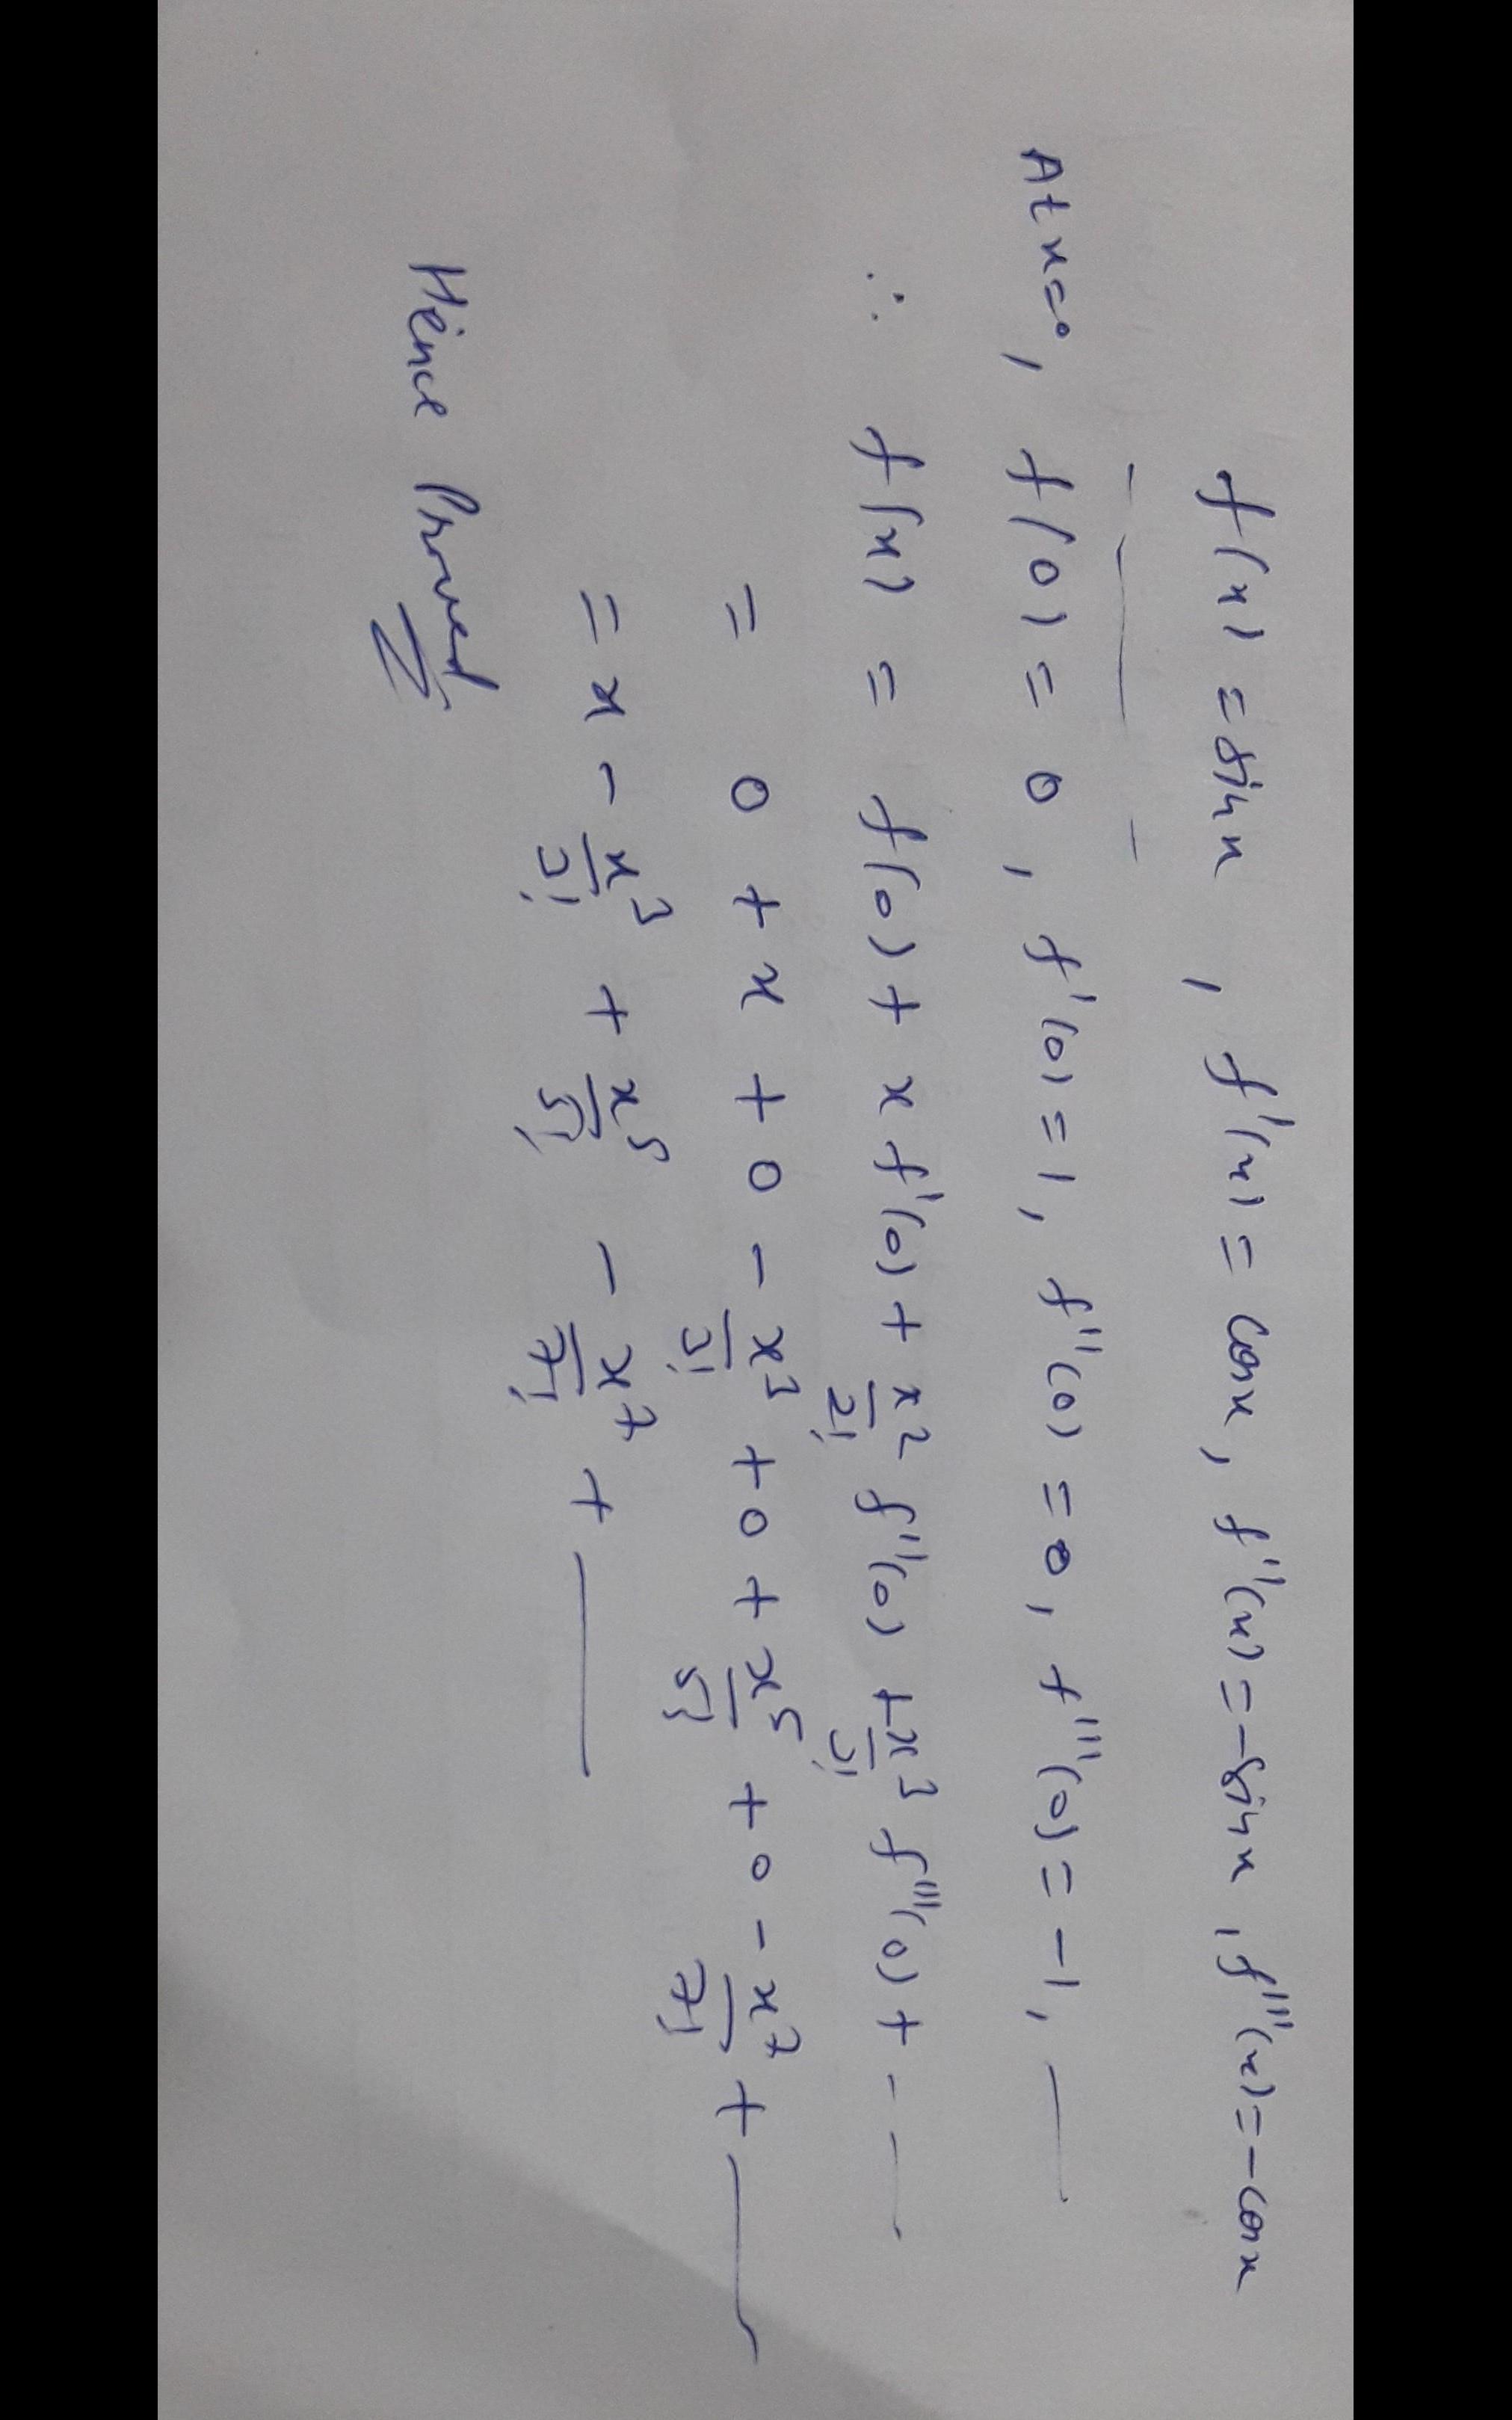 f(x) = sin x , f'(x) = cos x , f''(x) = -sin x , f'''(x) = -cos x
- — -
At x=0, f(0) = 0 , f'(0) = 1, f''(0) = 0, f'''(0) = -1, —
∴ f(x) = f(0) + x f'(0) + x²/2! f''(0) + x³/3! f'''(0) + - —
= 0 + x + 0 - x³/3! + 0 + x⁵/5! + 0 - x⁷/7! + —
= x - x³/3! + x⁵/5! - x⁷/7! + —
Hence Proved